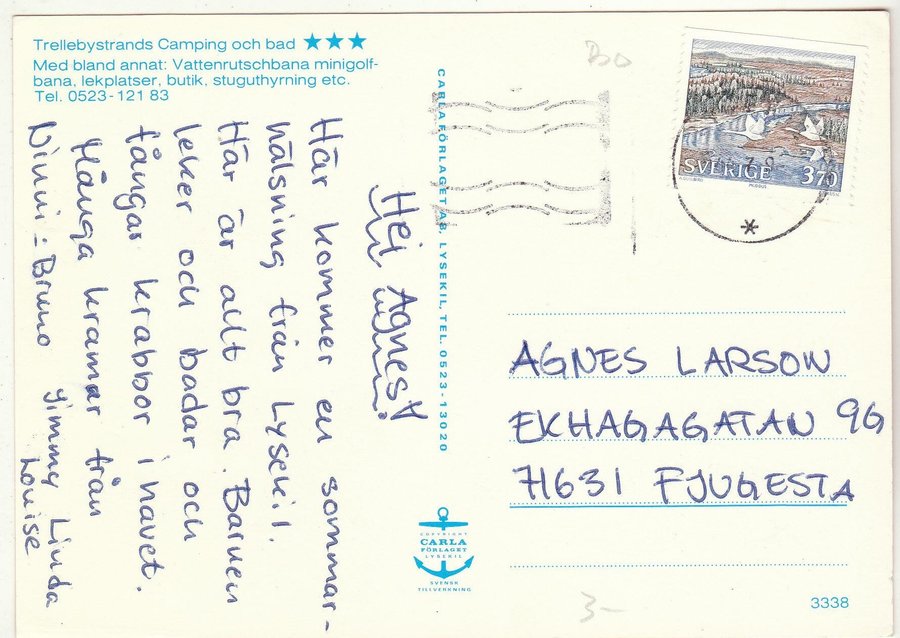 Trellebystrands Camping och bad ★★★
Med bland annat: Vattenrutschbana minigolf-
bana, lekplatser, butik, stuguthyrning etc.
Tel. 0523-121 83
Hej Agnes!
Här kommer en sommar-
hälsning från Lysekil.
Här är allt bra. Barnen
leker och badar och
fångar krabbor i havet.
Många kramar från
Ninni = Bruno Jimmy Linda
Louise
CARLA FÖRLAGET AB, LYSEKIL, TEL. 0523-13020
COPYRIGHT
CARLA
FÖRLAGET
LYSEKIL
SVENSK
TILLVERKNING
SVERIGE 370
AGNES LARSON
EKHAGAGATAN 9G
71631 FJUGESTA
3338
3-